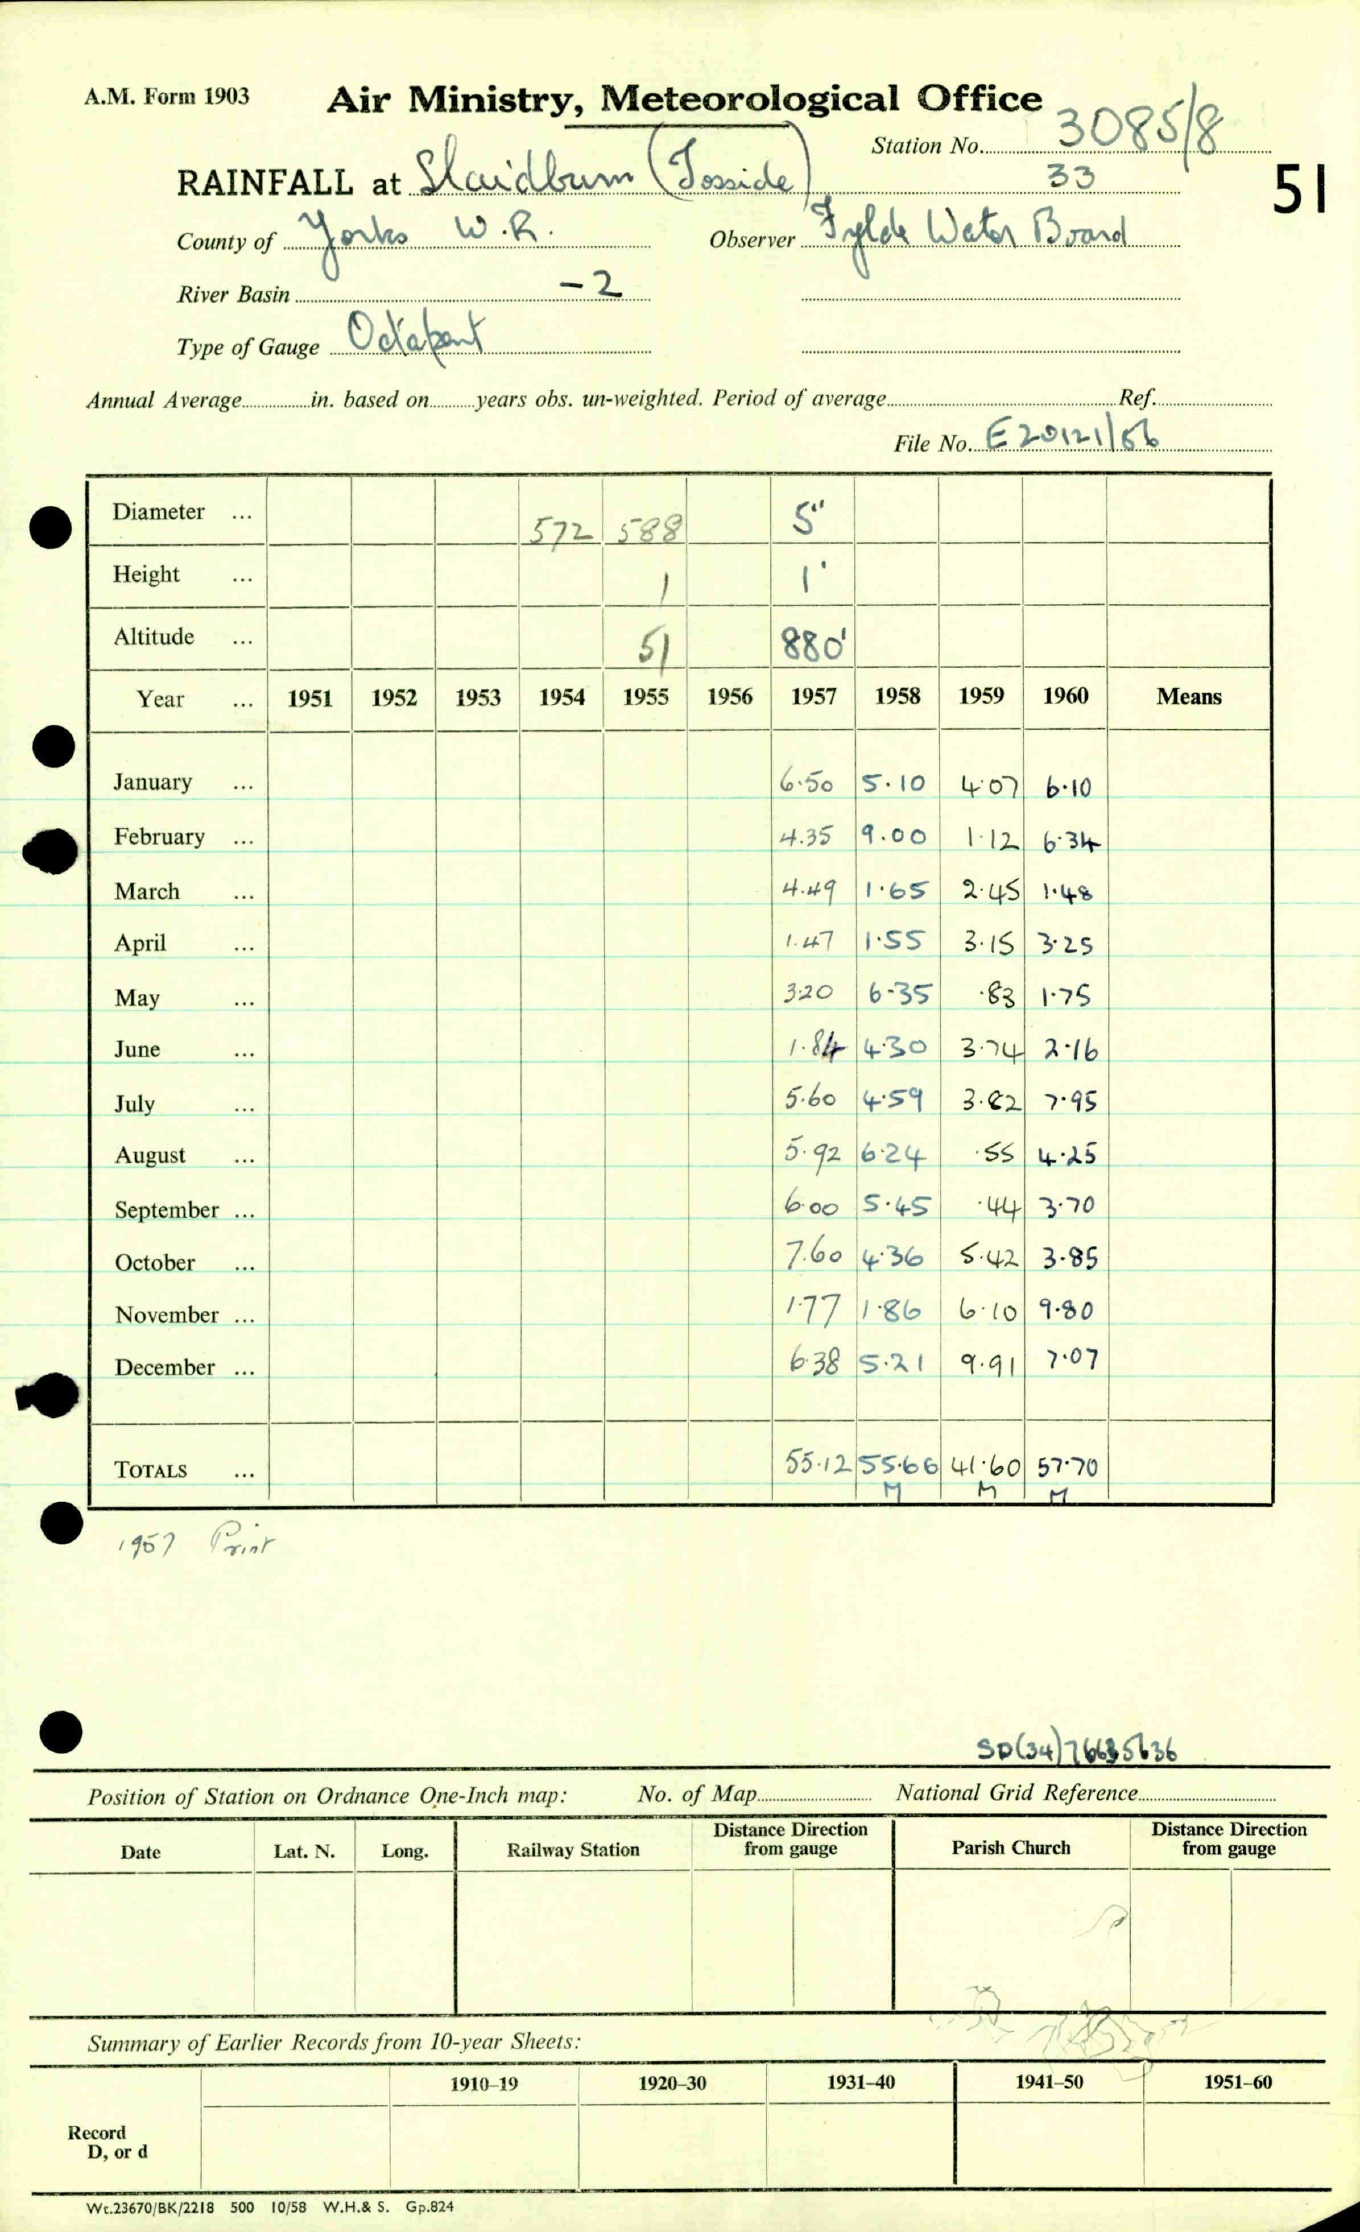 A.M. Form 1903
Air Ministry, Meteorological Office
Station No. 3085/8
RAINFALL at Slaidburn (Tosside)
33
51
County of Yorks W.R.
Observer Fylde Water Board
River Basin -2
Type of Gauge Octapent
Annual Average in. based on years obs. un-weighted. Period of average Ref.
File No. E20121/56
Diameter ... 572 588 5"
Height ... 1 1'
Altitude ... 51 880'
Year ... 1951 1952 1953 1954 1955 1956 1957 1958 1959 1960 Means
January ... 6.50 5.10 4.07 6.10
February ... 4.35 9.00 1.12 6.34
March ... 4.49 1.65 2.45 1.48
April ... 1.47 1.55 3.15 3.25
May ... 3.20 6.35 .83 1.75
June ... 1.84 4.30 3.74 2.16
July ... 5.60 4.59 3.82 7.95
August ... 5.92 6.24 .55 4.25
September ... 6.00 5.45 .44 3.70
October ... 7.60 4.36 5.42 3.85
November ... 1.77 1.86 6.10 9.80
December ... 6.38 5.21 9.91 7.07
TOTALS ... 55.12 55.66 41.60 57.70
M M M
1957 Print
SD(34)
Position of Station on Ordnance One-Inch map: No. of Map National Grid Reference
Date Lat. N. Long. Railway Station Distance Direction from gauge Parish Church Distance Direction from gauge
Summary of Earlier Records from 10-year Sheets:
1910-19 1920-30 1931-40 1941-50 1951-60
Record
D, or d
Wt.23670/BK/2218 500 10/58 W.H.& S. Gp.824